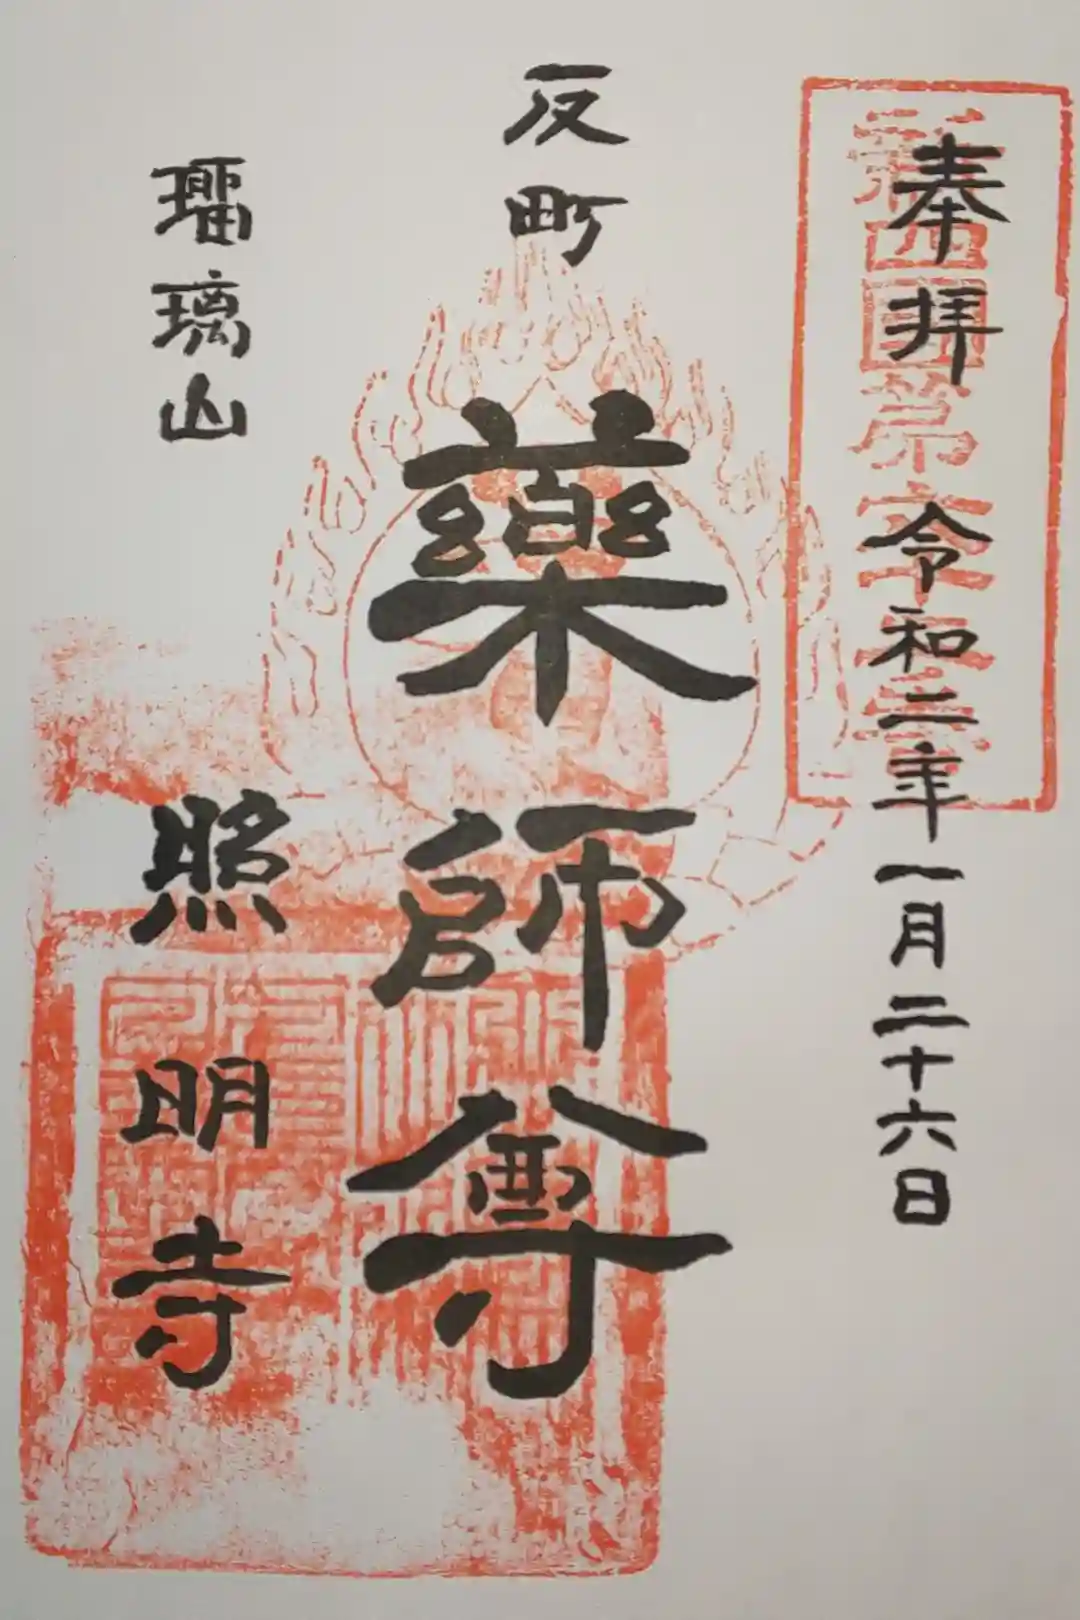 奉拝
令和二年一月二十六日
反町
藥師尊
瑠璃山
照明寺